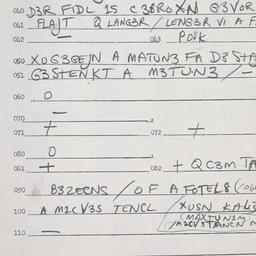 040 D3R FIDL 15 C38ROXN G3VOR
041 FLAJT Q LANG3R / LENG3R VI A F
042 — 043 POiK
050 XOG3GEJN A MATUN3 FA D3 STA
051 G3STENKT A M3TUN3 / -
060 O
—
070
071 + 072 +
080 O
081 + 082 + QC3M TA
090 83ZECNS / OF A FOTEL8 (06
100 A M1CV3S TENCL / XUSN KAL3
(MAXTUN1M
110 —